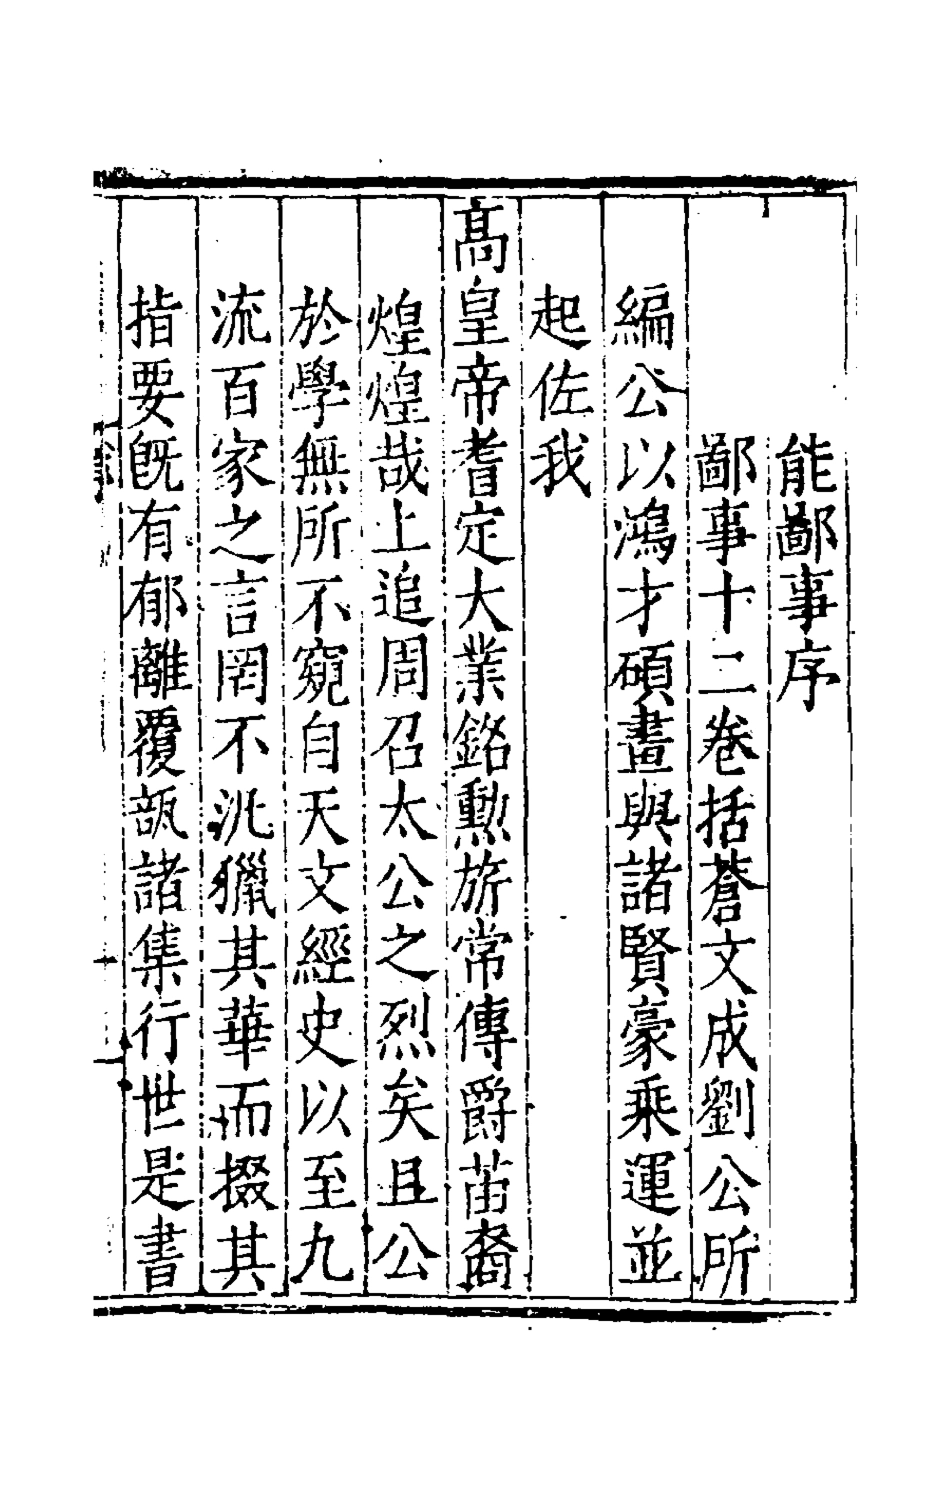 能鄙事序
鄙事十二卷括蒼文成劉公所
編公以鴻才碩畫與諸賢豪乘運並
起佐我
高皇帝耆定大業銘勳旂常傳爵苗裔
煌煌哉上追周召太公之烈矣且公
於學無所不窺自天文經史以至九
流百家之言罔不汎獵其華而掇其
指要旣有郁離覆瓿諸集行世是書